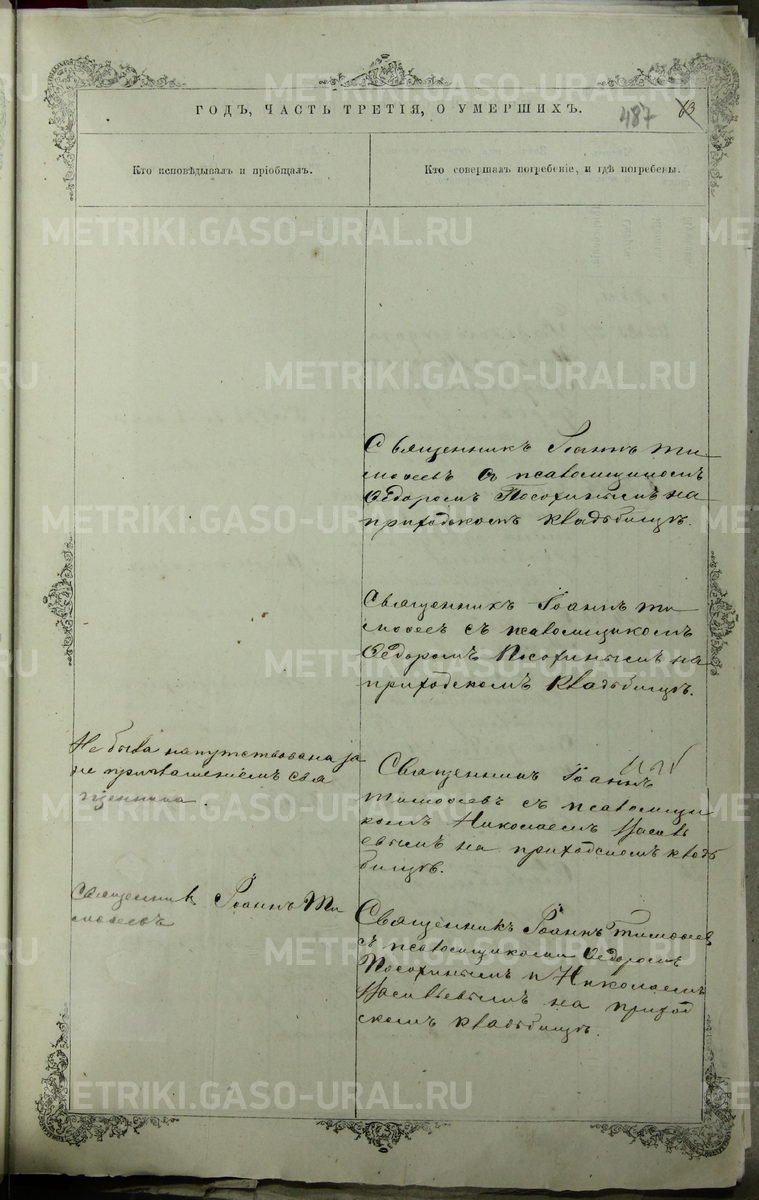 ГОДЪ, ЧАСТЬ ТРЕТІЯ, О УМЕРШИХЪ.
487 63
Кто исповѣдывалъ и пріобщалъ.
Кто совершалъ погребеніе, и гдѣ погребены.
METRIKI.GASO-URAL.RU
Священникъ Іоаннъ Ти
мофеевъ съ псаломщикомъ
Ѳедоромъ Посохинымъ на
приходскомъ кладбищѣ.
Священникъ Іоаннъ Ти
мофеев съ псаломщикомъ
Ѳедоромъ Посохинымъ на
приходскомъ кладбищѣ.
Не была напутствована за
не приглашеніемъ свя
щенника.
Священникъ Іоаннъ
Тимофеевъ съ псаломщи
комъ Николаемъ
на приходскомъ кладъ
бищѣ.
Священник Іоаннъ Ти
мофеевъ
Священникъ Іоаннъ Тимофеев
съ псаломщиками Ѳедоромъ
Посохинымъ и Николаемъ
на приход
скомъ кладъбищѣ.